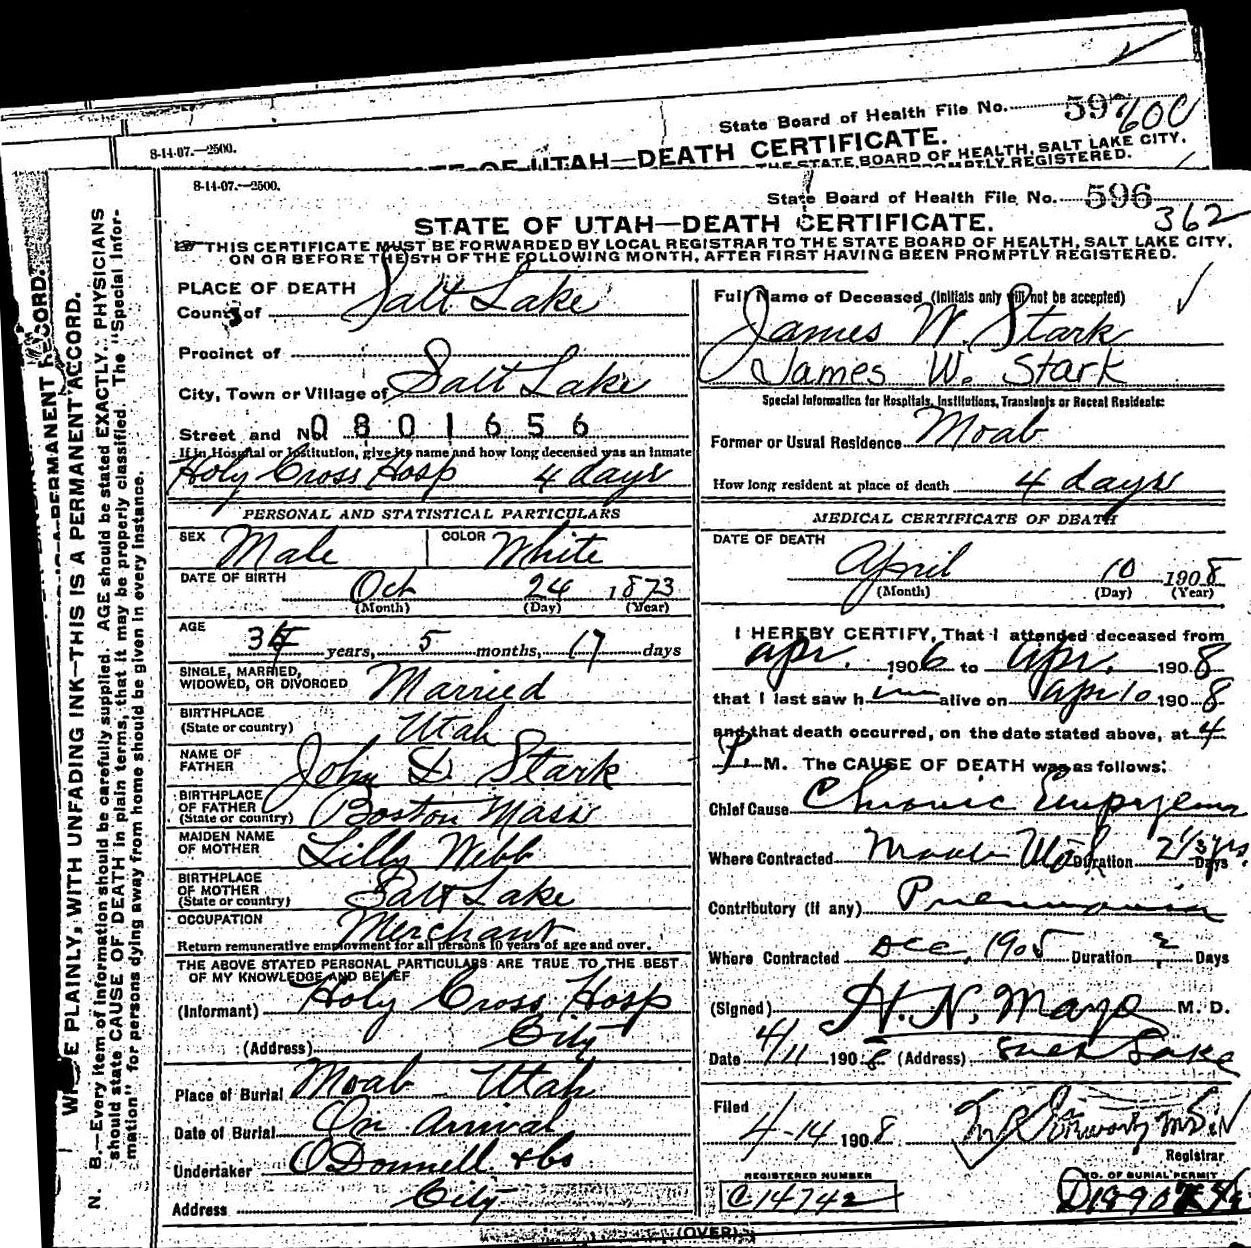 State Board of Health File No. 597 600
8-14-07.—2500.
OF UTAH—DEATH CERTIFICATE.
THE STATE BOARD OF HEALTH, SALT LAKE CITY,
PROMPTLY REGISTERED.
8-14-07.—2500.
State Board of Health File No. 596
362
STATE OF UTAH—DEATH CERTIFICATE.
THIS CERTIFICATE MUST BE FORWARDED BY LOCAL REGISTRAR TO THE STATE BOARD OF HEALTH, SALT LAKE CITY,
ON OR BEFORE THE 5TH OF THE FOLLOWING MONTH, AFTER FIRST HAVING BEEN PROMPTLY REGISTERED.
PLACE OF DEATH
County of Salt Lake
Precinct of
City, Town or Village of Salt Lake
Street and No. 0801656
If in Hospital or Institution, give its name and how long deceased was an inmate
Holy Cross Hosp 4 days
PERSONAL AND STATISTICAL PARTICULARS
SEX Male COLOR White
DATE OF BIRTH
Oct 24 1873
(Month) (Day) (Year)
AGE
34 years, 5 months, 17 days
SINGLE, MARRIED,
WIDOWED, OR DIVORCED Married
BIRTHPLACE
(State or country) Utah
NAME OF
FATHER John D. Stark
BIRTHPLACE
OF FATHER
(State or country) Boston Mass
MAIDEN NAME
OF MOTHER Lilly Webb
BIRTHPLACE
OF MOTHER
(State or country) Salt Lake
OCCUPATION Merchant
Return remunerative employment for all persons 10 years of age and over.
THE ABOVE STATED PERSONAL PARTICULARS ARE TRUE TO THE BEST
OF MY KNOWLEDGE AND BELIEF
(Informant) Holy Cross Hosp
(Address) City
Place of Burial Moab Utah
Date of Burial On Arrival
Undertaker O'Donnell & Co
Address City
Full Name of Deceased (Initials only will not be accepted)
James W. Stark
James W. Stark
Special Information for Hospitals, Institutions, Transients or Recent Residents:
Former or Usual Residence Moab
How long resident at place of death 4 days
MEDICAL CERTIFICATE OF DEATH
DATE OF DEATH
April 10 1908
(Month) (Day) (Year)
I HEREBY CERTIFY, That I attended deceased from
Apr. 1906 to Apr. 1908
that I last saw him alive on Apr 10 1908
and that death occurred, on the date stated above, at 4
P. M. The CAUSE OF DEATH was as follows:
Chief Cause Chronic Empyema
Where Contracted Moab Utah Duration 2 1/3 yrs. Days
Contributory (if any) Pneumonia
Where Contracted Dec. 1905 Duration ? Days
(Signed) H. N. Mayo M. D.
Date 4/11 1908 (Address) Salt Lake
Filed
4-14 1908
Registrar
REGISTERED NUMBER
C14742
NO. OF BURIAL PERMIT
(OVER)
WRITE PLAINLY, WITH UNFADING INK—THIS IS A PERMANENT RECORD.
N. B.—Every item of information should be carefully supplied. AGE should be stated EXACTLY. PHYSICIANS
should state CAUSE OF DEATH in plain terms, that it may be properly classified. The "Special Infor-
mation" for persons dying away from home should be given in every instance.